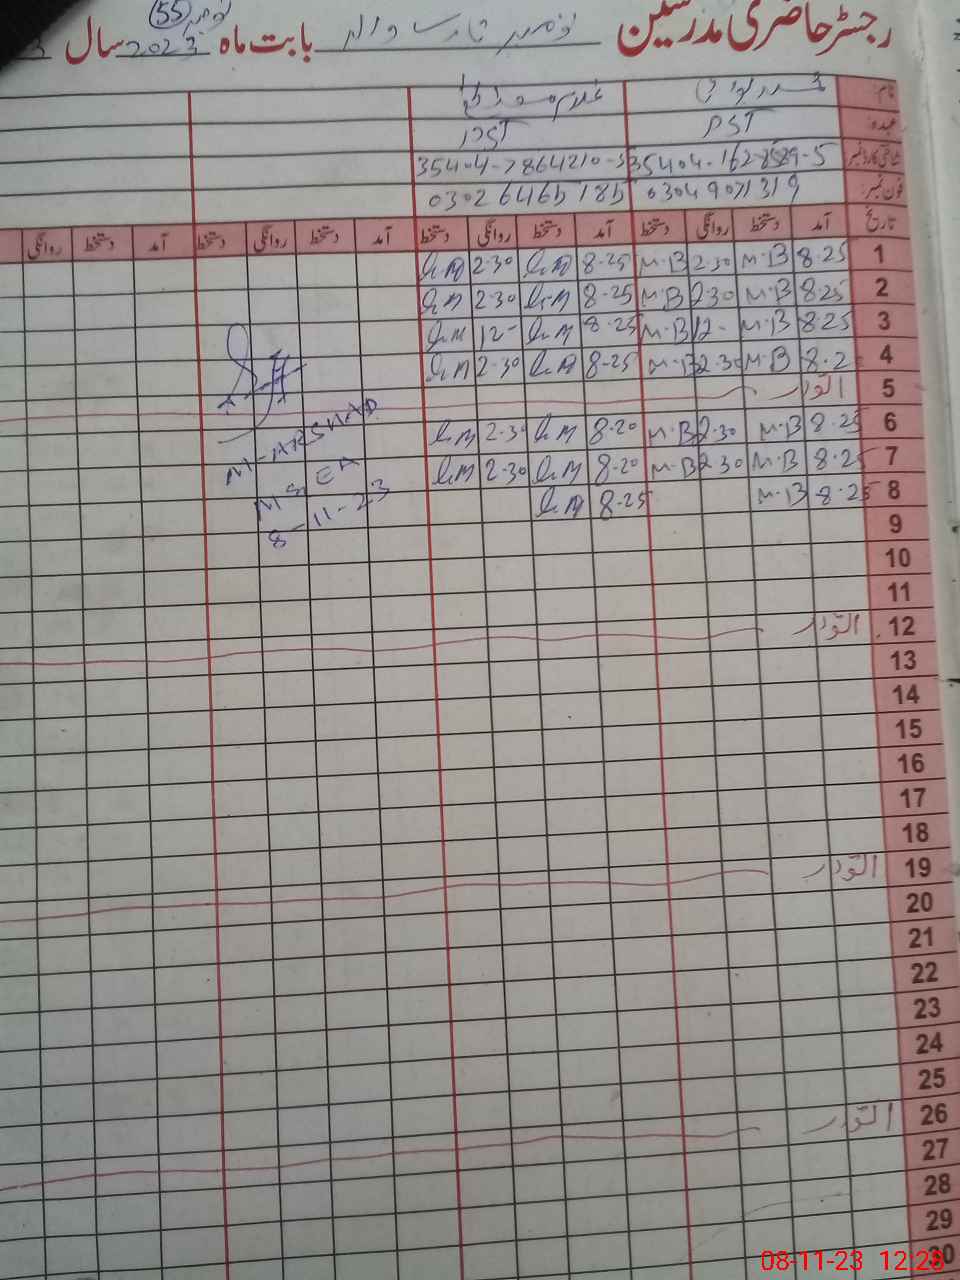 رجسٹر حاضری مدرسین بابت ماہ نومبر 2023 سال
55
نام:
عہدہ: PST PST
شناختی کارڈ نمبر 35404-1628589-5 35404-7864210-5
فون نمبر: 03049071319 03026465185
تاریخ آمد دستخط روانگی دستخط آمد دستخط روانگی دستخط آمد دستخط روانگی دستخط آمد دستخط روانگی
1 8.25 M.B 2.30 M.B 8-25 2.30
2 8.25 M.B 2.30 M.B 8-25 2.30
3 8.25 M.B 12- M.B 8.25 12-
4 8.2 M.B 2.30 M.B 8-25 2.30
5 اتوار
6 8.25 M.B 2.30 M.B 8.20 2.30
7 8.25 M.B 2.30 M.B 8.20 2.30
8 8.25 M.B 8.25
M-ARSHAD
MEA
8-11-23
9
10
11
12 اتوار
13
14
15
16
17
18
19 اتوار
20
21
22
23
24
25
26 اتوار
27
28
29
30
08-11-23 12:28